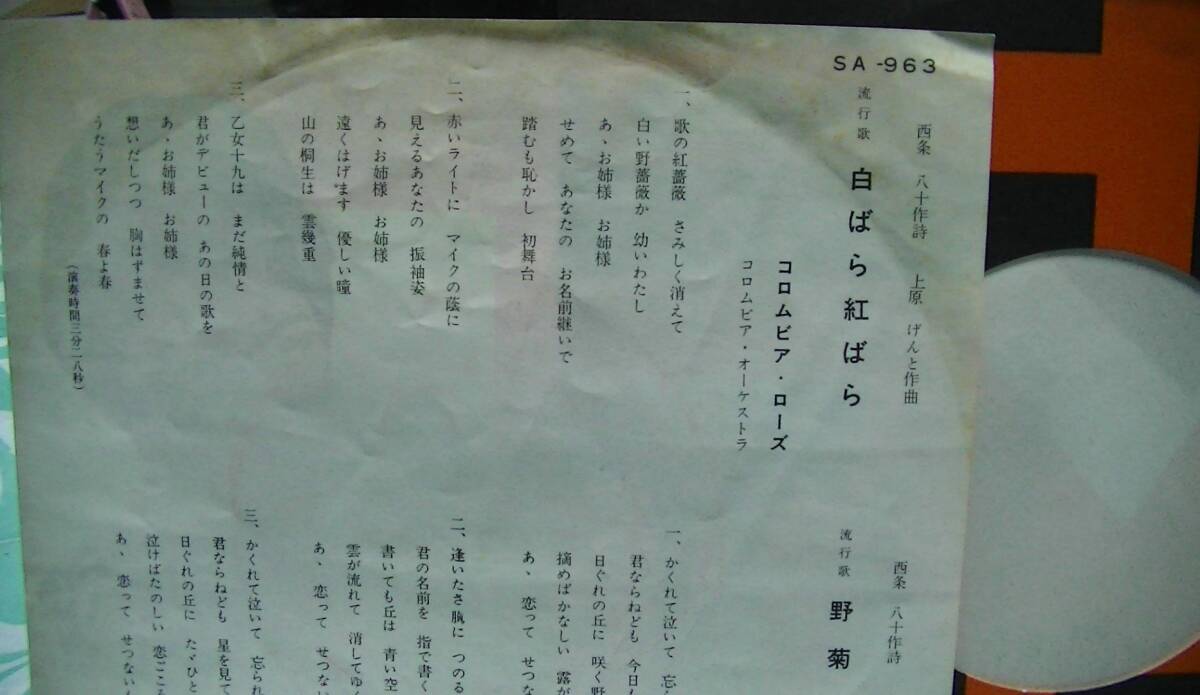 SA-963
西条 八十作詩 上原 げんと作曲
流行歌 白ばら紅ばら
コロムビア・ローズ
コロムビア・オーケストラ
一、歌の紅薔薇 さみしく消えて
白い野薔薇か 幼いわたし
あゝお姉様 お姉様
せめて あなたの お名前継いで
踏むも恥かし 初舞台
二、赤いライトに マイクの蔭に
見えるあなたの 振袖姿
あゝお姉様 お姉様
遠くはげます 優しい瞳
山の桐生は 雲幾重
三、乙女十九は まだ純情と
君がデビューの あの日の歌を
あゝお姉様 お姉様
想いだしつつ 胸はずませて
うたうマイクの 春よ春
(演奏時間三分二八秒)
西条 八十作詩
流行歌 野菊
一、かくれて泣いて 忘
君ならねども 今日
日ぐれの丘に 咲く野
摘めばかなしい 露が
あゝ 恋って せつな
二、逢いたさ胸に つのる
君の名前を 指で書く
書いても丘は 青い空
雲が流れて 消してゆく
あゝ 恋って せつない
三、かくれて泣いて 忘られ
君ならねども 星を見て
日ぐれの丘に たゞひと
泣けばたのしい 恋ごころ
あゝ 恋って せつない